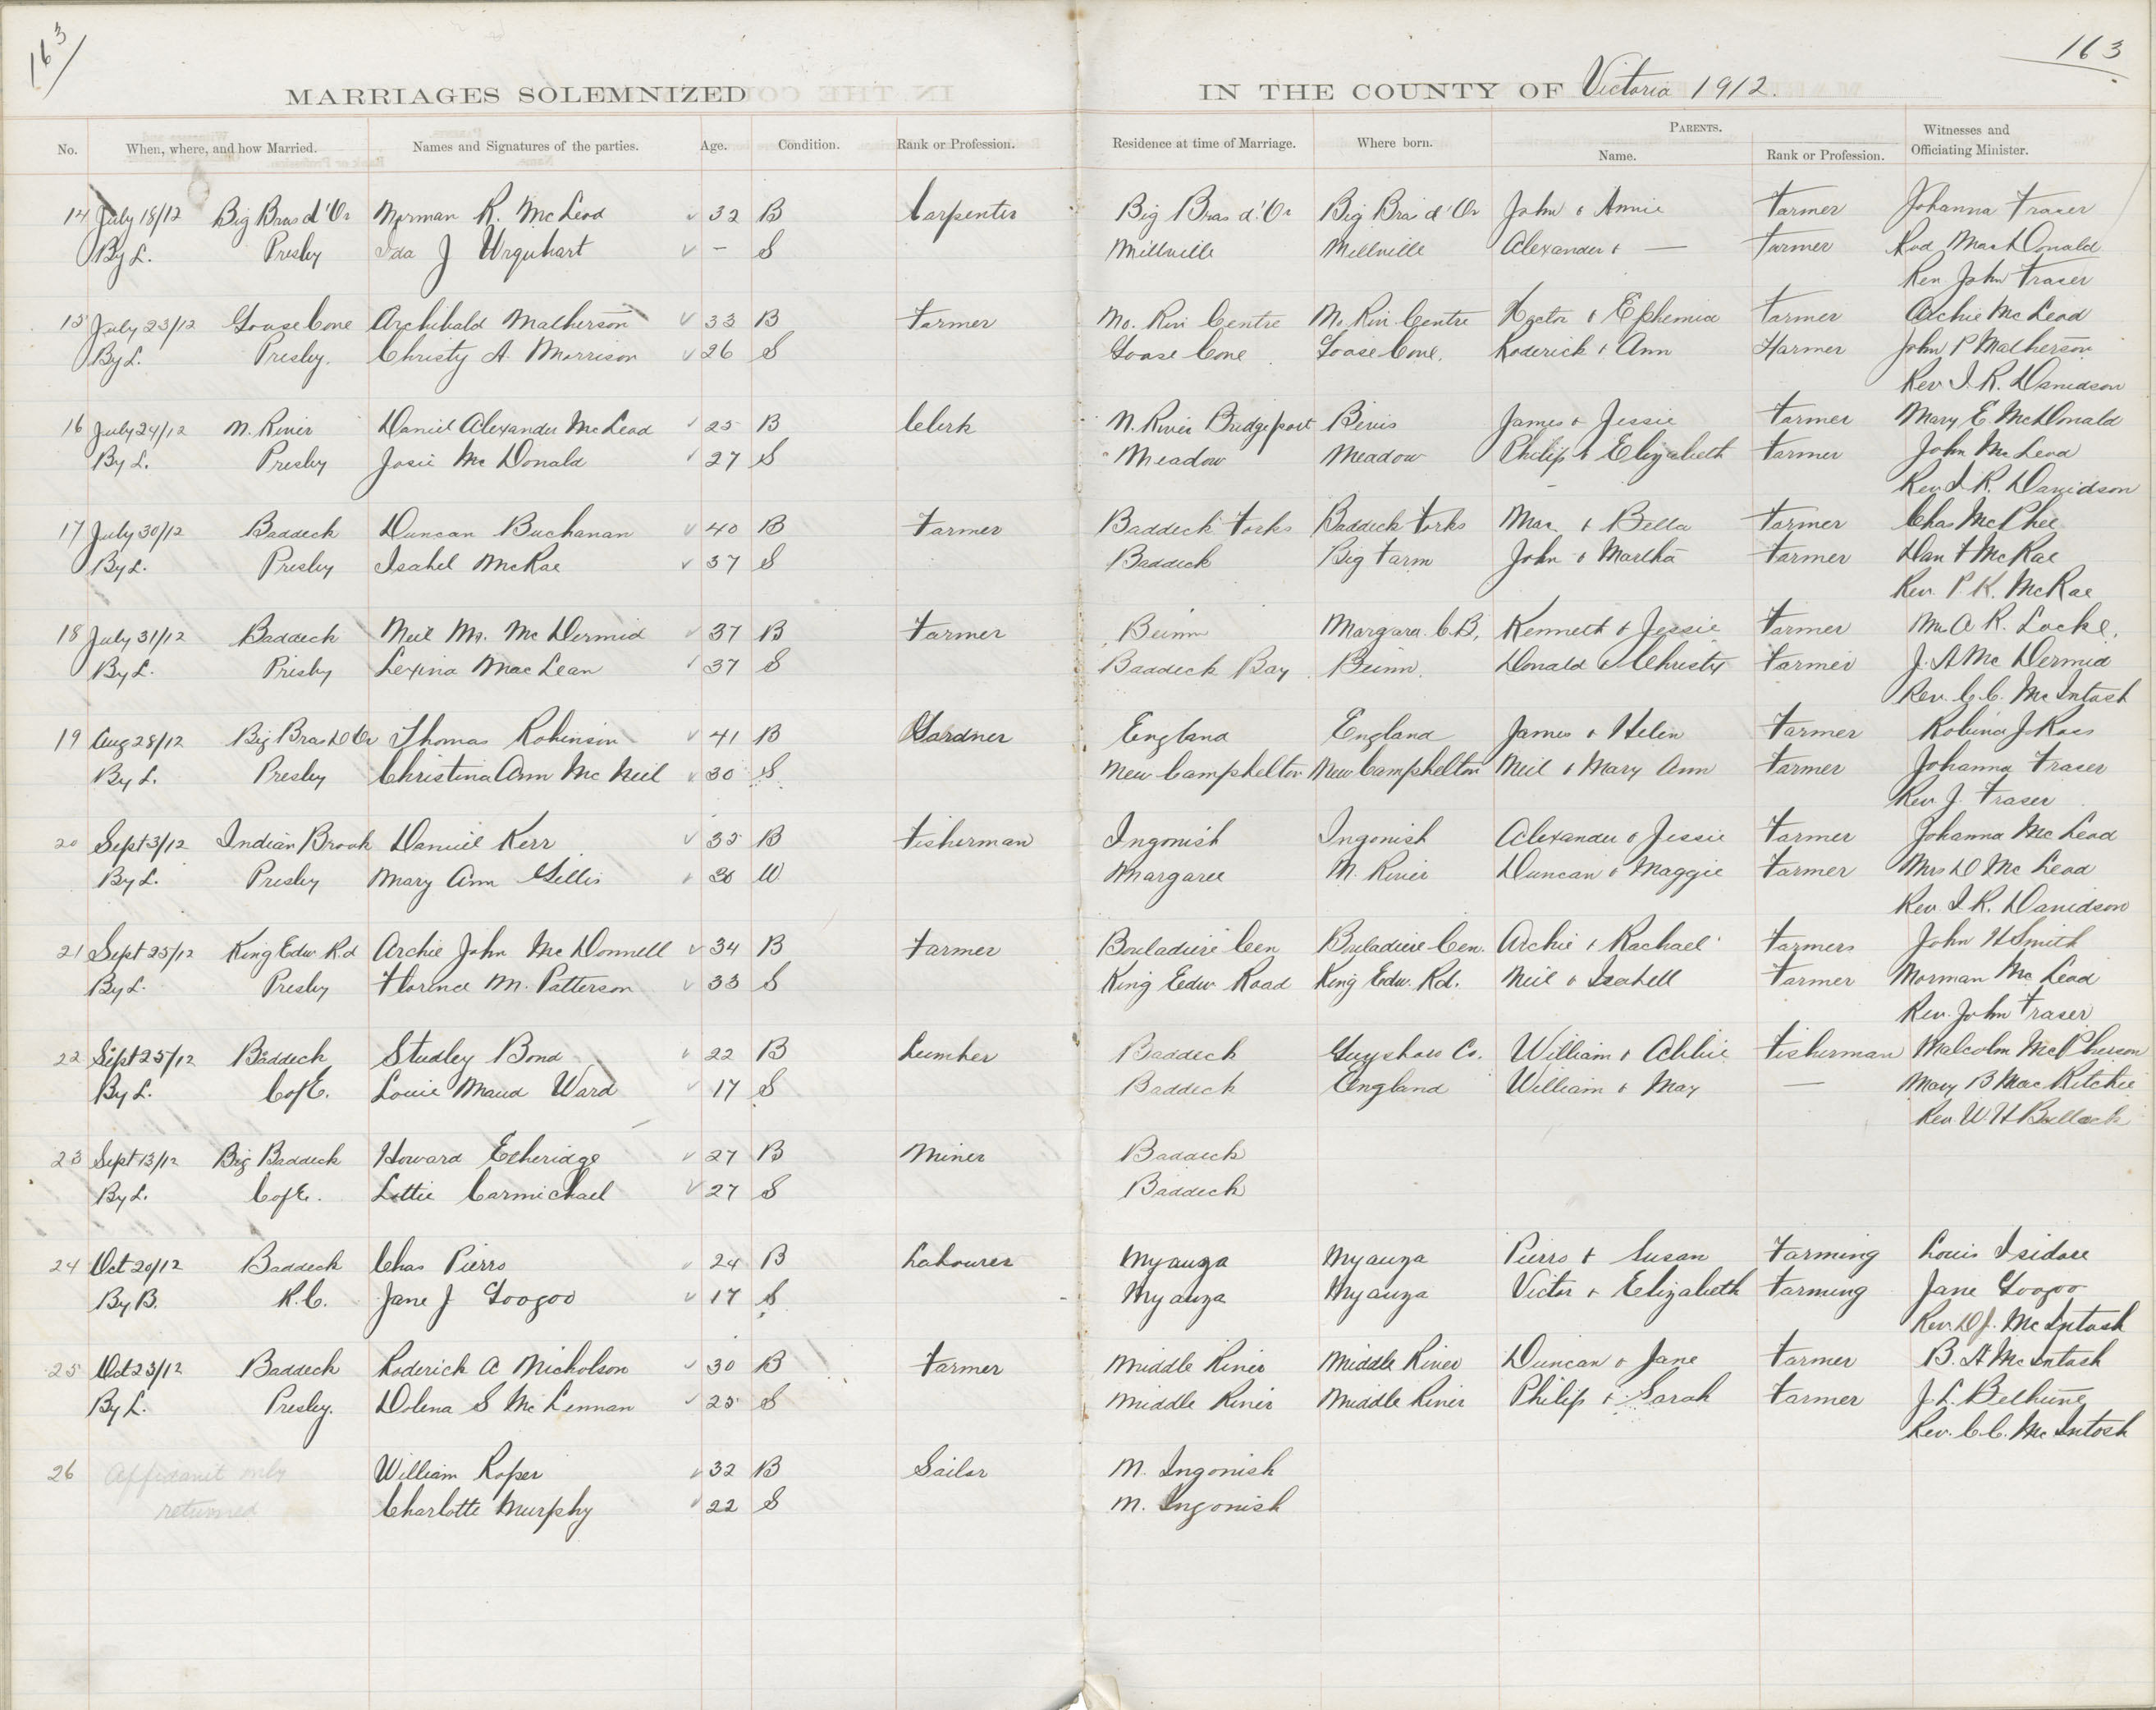 163
163
MARRIAGES SOLEMNIZED IN THE COUNTY OF Victoria 1912.
No. When, where, and how Married. Names and Signatures of the parties. Age. Condition. Rank or Profession. Residence at time of Marriage. Where born. PARENTS. Name. Rank or Profession. Witnesses and Officiating Minister.
14 July 18/12 Big Bras d'Or Norman R. McLeod 32 B Carpenter Big Bras d'Or Big Bras d'Or John & Annie Farmer Johanna Fraser
By L. Presby Ida J Urquhart – S Millville Millville Alexander & — Farmer Rod MacDonald
Rev John Fraser
15 July 23/12 Goose Cove Archibald Matherson 33 B Farmer No. Riv Centre No Riv Centre Hector & Ephemia Farmer Archie McLeod
By L. Presby. Christy A. Morrison 26 S Goose Cove Goose Cove. Roderick & Ann Farmer John P Matherson
Rev. I. R. Davidson
16 July 24/12 N. River Daniel Alexander McLeod 25 B Clerk N. River Bridgeport Bevis James & Jessie Farmer Mary E. McDonald
By L. Presby Josie McDonald 27 S " Meadow Meadow Philip & Elizabeth Farmer John McLeod
Rev. I. R. Davidson
17 July 30/12 Baddeck Duncan Buchanan 40 B Farmer Baddeck Forks Baddeck Forks & Bella Farmer Chas McPhee
By L. Presby Isabel McRae 37 S Baddeck Big Farm John & Martha Farmer Dan F McRae
Rev. P. K. McRae
18 July 31/12 Baddeck Neil Mc. McDermid 37 B Farmer Beinn Margaree C.B. Kenneth & Jessie Farmer A. R. Locke.
By L. Presby Lexina MacLean 37 S Baddeck Bay Beinn. Donald & Christy Farmer J. A McDermid
Rev. C. C. McIntosh
19 Aug 28/12 Big Bras D'Or Thomas Robinson 41 B Gardner England England James & Helen Farmer Robina J Ross
By L. Presby Christina Ann McNeil 30 S New Campbelton New Campbelton Neil & Mary Ann Farmer Johanna Fraser
Rev. J. Fraser
20 Sept 3/12 Indian Brook Daniel Kerr 35 B Fisherman Ingonish Ingonish Alexander & Jessie Farmer Johanna McLeod
By L. Presby Mary Ann Gillis 30 W Margaree N. River Duncan & Maggie Farmer Mrs D McLeod
Rev. I. R. Davidson
21 Sept 25/12 King Edw Rd Archie John McDonnell 34 B Farmer Bouladiere Cen Bouladiere Cen. Archie & Rachael Farmers John H Smith
By L. Presby Florence M. Patterson 33 S King Edw Road King Edw. Rd. Neil & Isabell Farmer Norman McLeod
Rev. John Fraser
22 Sept 25/12 Baddeck Studley Bond 22 B Lumber Baddeck Guysboro Co. William & Abbie Fisherman Malcolm McPherson
By L. C of E. Louie Maud Ward 17 S Baddeck England William & May — Mary B MacRitchie
Rev W. H Bullock
23 Sept 13/12 Big Baddeck Howard Etheridge 27 B Miner Baddeck
By L. C of E. Lottie Carmichael 27 S Baddeck
24 Oct 20/12 Baddeck Chas Pierro 24 B Labourer Nyanza Nyanza Pierro & Susan Farming Louis Isidore
By B. R. C. Jane J Googoo 17 S Nyanza Nyanza Victor & Elizabeth Farming Jane Googoo
Rev. D. J. McIntosh
25 Oct 23/12 Baddeck Roderick A Nicholson 30 B Farmer Middle River Middle River Duncan & Jane Farmer B. A McIntosh
By L. Presby. Dolena S McLennan 25 S Middle River Middle River Philip & Sarah Farmer J. L. Bethune
Rev. C. C. McIntosh
26 Affidavit only William Roper 32 B Sailor N. Ingonish
returned Charlotte Murphy 22 S N. Ingonish